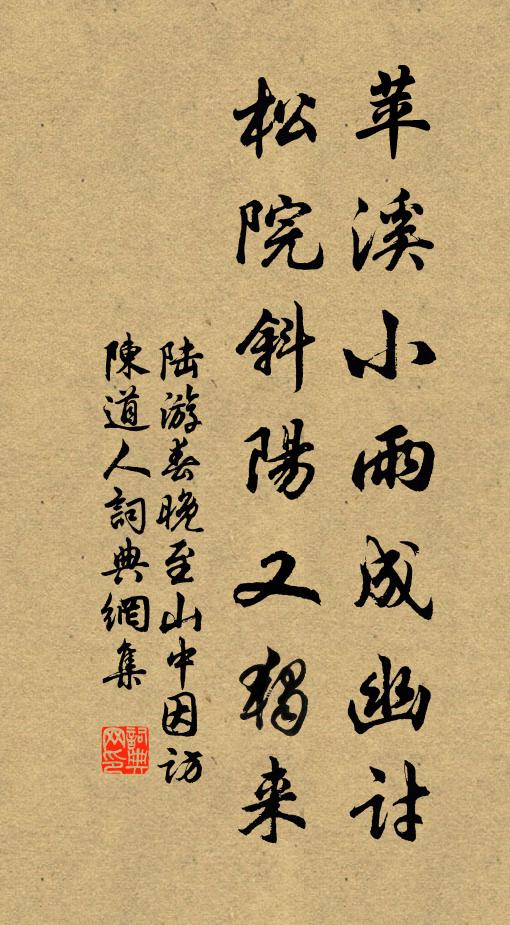 苹溪小雨成幽討
松院斜陽又獨来
陆游春晚至山中因访
陳道人詞典網集
詞典网印